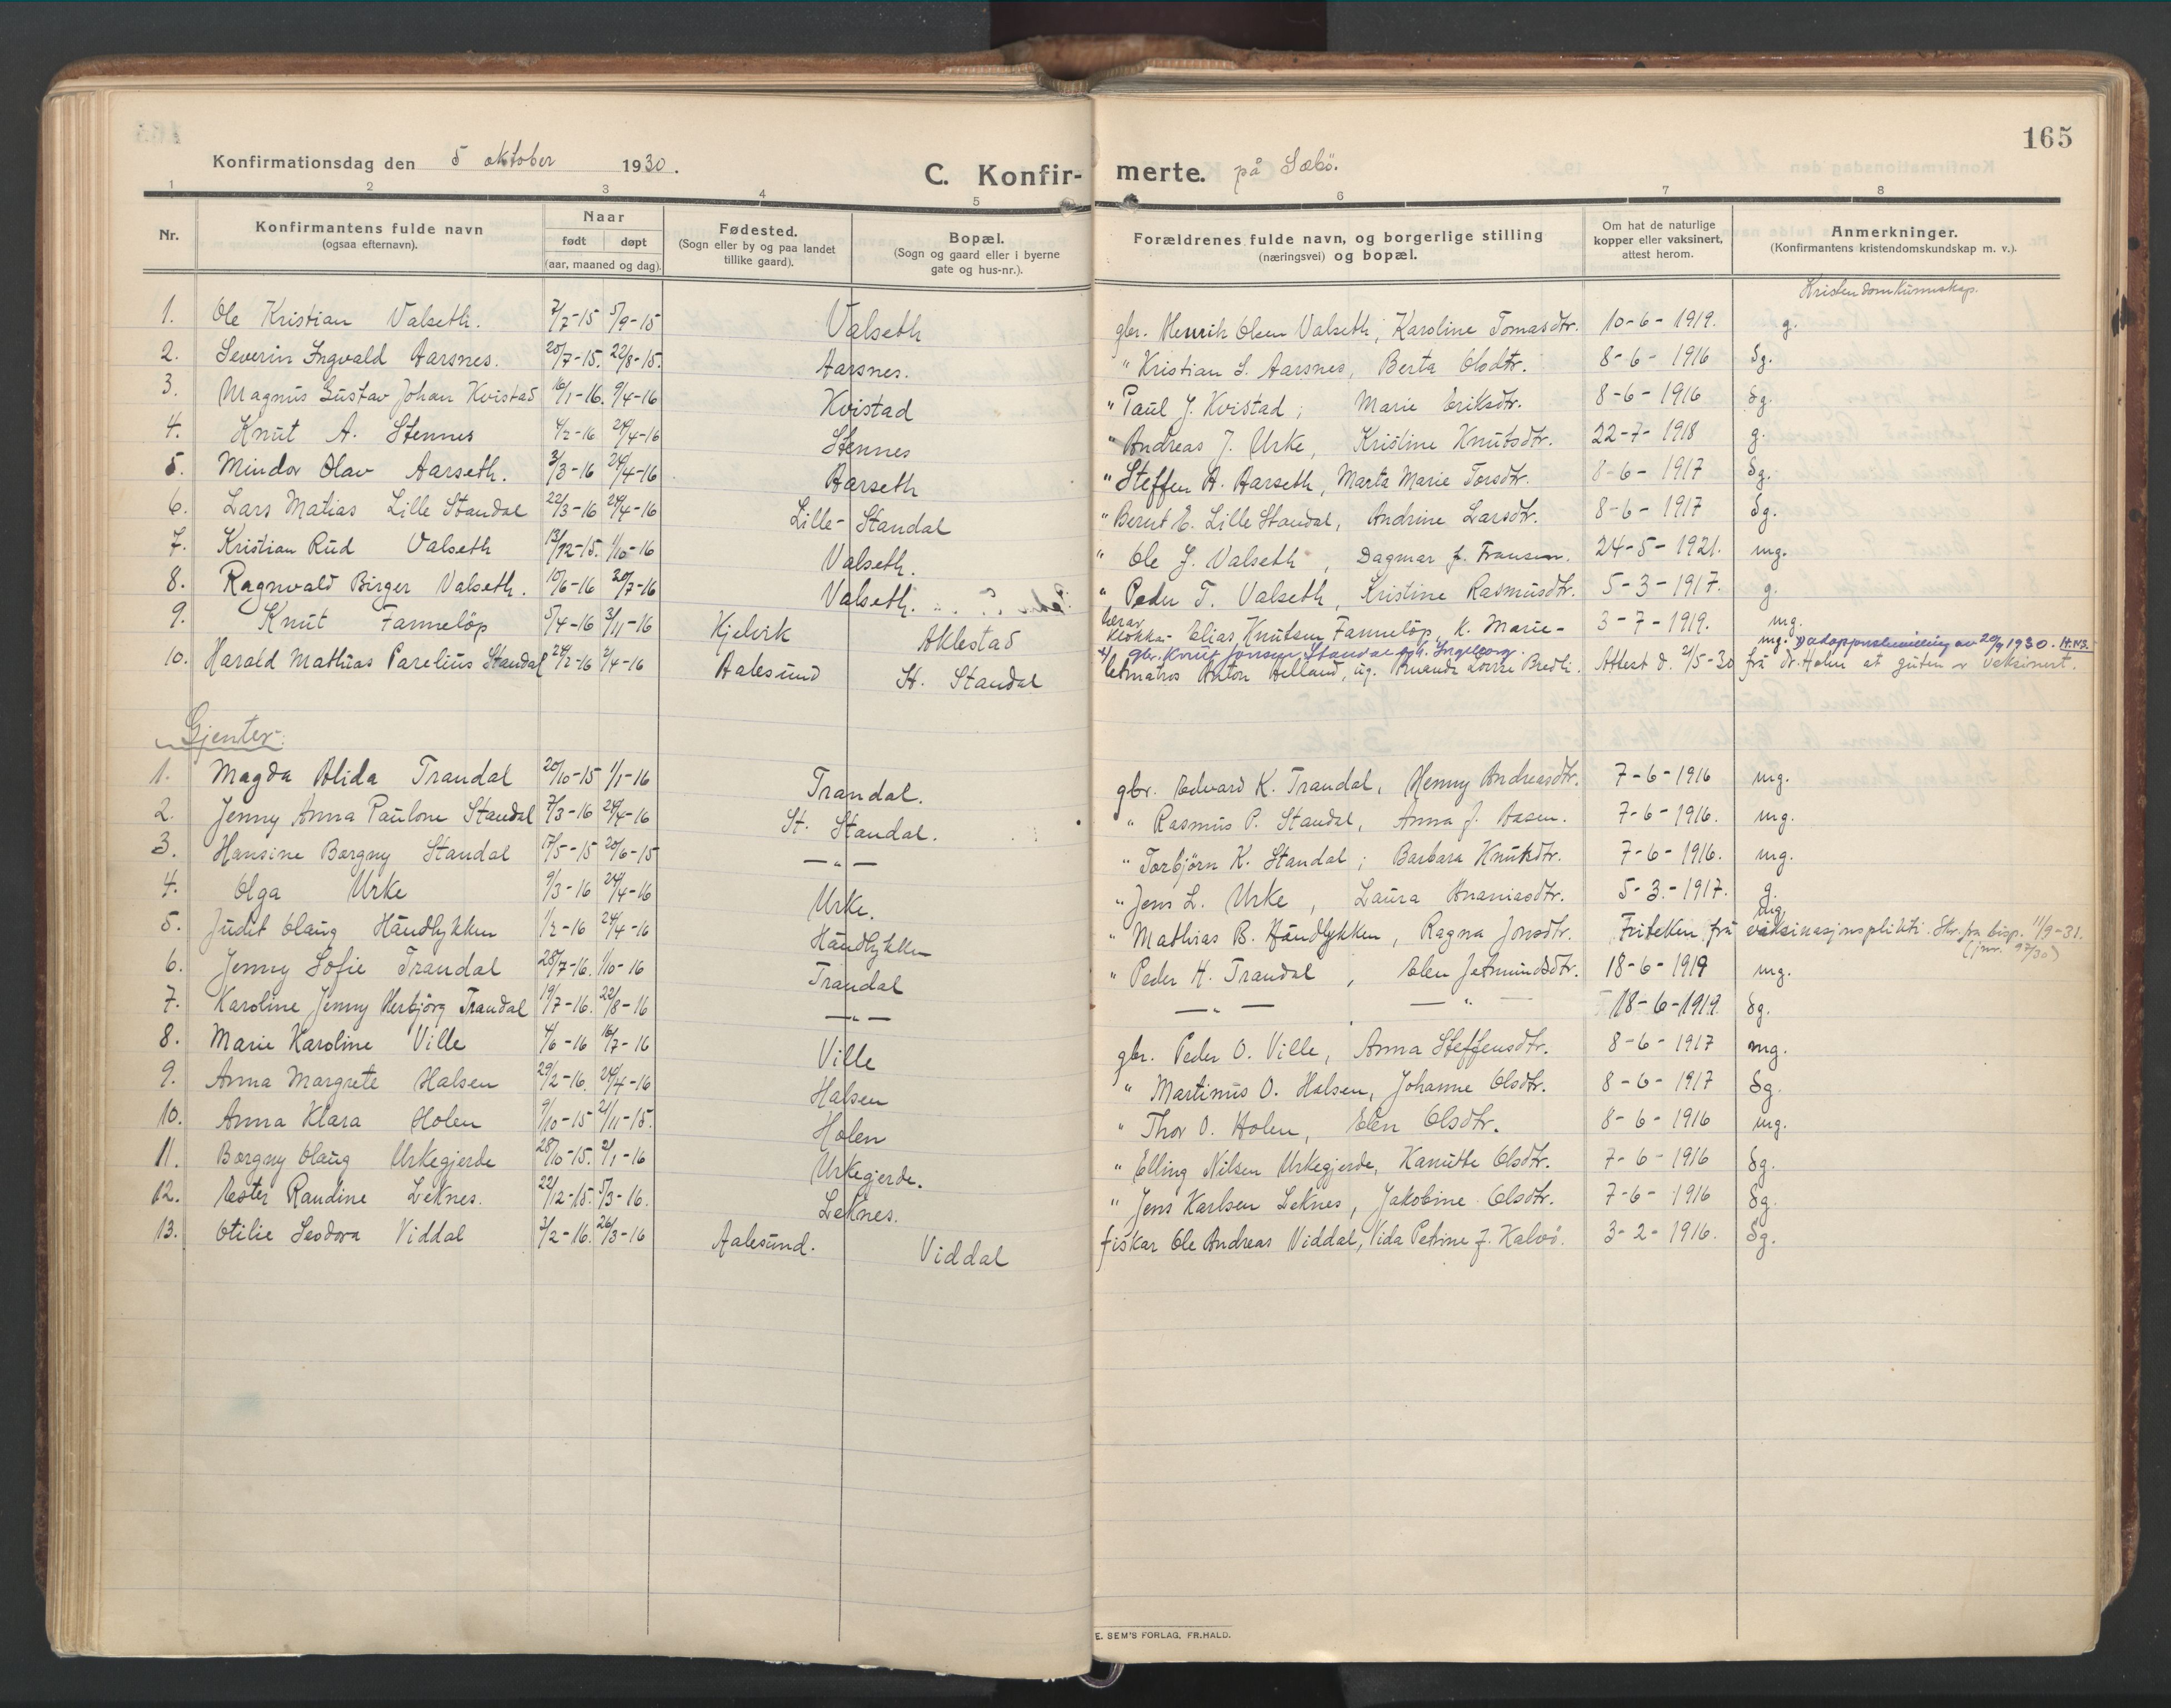 165
Konfirmationsdag den 5 oktober 1930.
C. Konfirmerte. på Sæbö.
1 2 3 4 5 6 7 8
Nr. Konfirmantens fulde navn (ogsaa efternavn). Naar født døpt (aar, maaned og dag). Fødested. (Sogn eller by og paa landet tillike gaard). Bopæl. (Sogn og gaard eller i byerne gate og hus-nr.). Forældrenes fulde navn, og borgerlige stilling (næringsvei) og bopæl. Om hat de naturlige kopper eller vaksinert, attest herom. Anmerkninger. (Konfirmantens kristendomskundskap m. v.).
Kristendomkunnskap.
1. Ole Kristian Valseth. 7/7-15 5/9-15 Valseth gbr. Henrik Olsen Valseth, Karoline Tomasdtr. 10-6-1919. g.
2. Severin Ingvald Aarsnes. 20/7-15. 22/8-15. Aarsnes. " Kristian S. Aarsnes, Berta Olsdtr. 8-6-1916 Sg.
3. Magnus Gustav Johan Kvistad 16/1-16. 9/4-16 Kvistad " Paul J. Kvistad; Marie Eriksdtr. 8-6-1916 Sg.
4. Knut A. Stennes 4/2-16 24/4-16 Stennes " Andreas J. Urke, Kristine Knutsdtr. 22-7-1918 g.
5. Mindor Olav Aarseth. 3/3-16 24/4-16 Aarseth " Steffen A. Aarseth, Marta Marie Torsdtr. 8-6-1917 Sg.
6. Lars Matias Lille Standal 22/3-16 24/4-16 Lille-Standal " Bernt E. Lille Standal, Andrine Larsdtr. 8-6-1917 Sg.
7. Kristian Rud Valseth 13/12-15. 1/10-16 Valseth. " Ole J. Valseth, Dagmar f. Fransen. 24-5-1921. mg.
8. Ragnvald Birger Valseth. 10/6-16 30/7-16 Valseth. " Peder T. Valseth, Kristine Rasmusdtr. 5-3-1917. g.
9. Knut Fannelöp 5/4-16 3/11-16 Kjelvik Aklestad lærar klokka- Elias Knutsen Fannelöp, k. Marie- 3-7-1919. mg.
10. Harald Mathias Parelius Standal 24/2-16 2/4-16 Aalesund St. Standal gbr. Knut Jonsen Standal Ingeborg. mg. adopjonsbevilling av 20/9 1930. H.N.S.
letmatros Anton Helland, ug. Amanda Lovise Bredli. Attest d. 2/5-30 frå dr. Holm at guten er vaksinert.
Gjenter:
1. Magda Alida Trandal 20/10-15 1/1-16 Trandal. gbr. Edvard K. Trandal, Henny Andreasdtr. 7-6-1916 mg.
2. Jenny Anna Pauline Standal 7/3-16 24/4-16 St. Standal. " Rasmus P. Standal, Anna J. Aasen. 7-6-1916. mg.
3. Hansine Borgny Standal 17/5-15 20/6-15 —"— " Torbjörn K. Standal; Barbara Knutsdtr. 7-6-1916. mg.
4. Olga Urke 9/3-16 24/4-16 Urke. " Jens L. Urke, Laura Ananiasdtr. 5-3-1917. g.
5. Judit Olaug Håndlykken 1/2-16 24/4-16 Håndlykken " Mathias B. Håndlykken, Ragna Jonsdtr. Friteken frå vaksinasjonsplikti. Skr. fra bisp. 11/9-31. (jnr. 97/30)
6. Jenny Sofie Trandal 28/7-16. 1/10-16 Trandal " Peder H. Trandal, Elen Jetmundsdtr. 18-6-1919 mg.
7. Karoline Jenny Herbjörg Trandal 19/7-16. 22/8-16 —"— —"— —"— 18-6-1919. Sg.
8. Marie Karoline Ville 4/6-16 16/7-16 Ville gbr. Peder O. Ville, Anna Steffensdtr. 8-6-1917 mg.
9. Anna Margrete Halsen 29/2-16. 24/4-16 Halsen " Martinus O. Halsen, Johanne Olsdtr. 8-6-1917 Sg.
10. Anna Klara Holen 9/10-15 21/11-15. Holen " Thor O. Holen, Elen Olsdtr. 8-6-1916 mg.
11. Borgny Olaug Urkegjerde 28/10-15. 2/1-16 Urkegjerde. " Elling Nilsen Urkegjerde, Kanutte Olsdtr. 7-6-1916 Sg.
12. Ester Raudine Leknes. 22/12-15. 5/3-16. Leknes. " Jens Karlsen Leknes, Jakobine Olsdtr. 7-6-1916 Sg.
13. Otilie Teodora Viddal 3/2-16. 26/3-16 Aalesund. Viddal fiskar Ole Andreas Viddal, Vida Petrine f. Kalvö. 3-2-1916. Sg.
E. SEM'S FORLAG, FR.HALD.